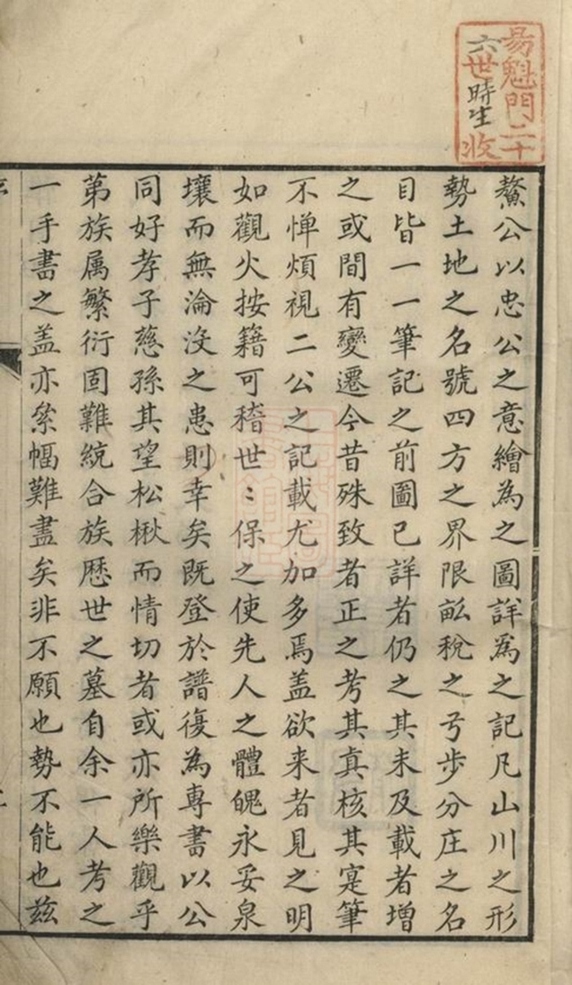 易魁門二十
六世時生收
鰲公以忠公之意繪為之圖詳為之記凡山川之形
勢土地之名號四方之界限畝稅之弓步分庄之名
目皆一一筆記之前圖已詳者仍之其未及載者增
之或間有變遷今昔殊致者正之考其真核其寔筆
不憚煩視二公之記載尤加多焉盖欲来者見之明
如觀火按籍可稽世〻保之使先人之體魄永妥泉
壤而無淪没之患則幸矣既登於譜復為專書以公
同好孝子慈孫其望松楸而情切者或亦所樂觀乎
第族属繁衍固難統合族歷世之墓自余一人考之
一手書之盖亦纍幅難盡矣非不願也勢不能也兹